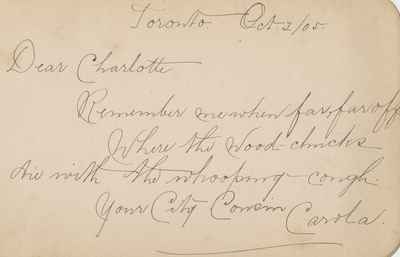 Toronto Oct 2/05.
Dear Charlotte
Remember me when far, far off
Where the Wood-chucks
die with the whooping-cough.
Your City Cousin
Carola.